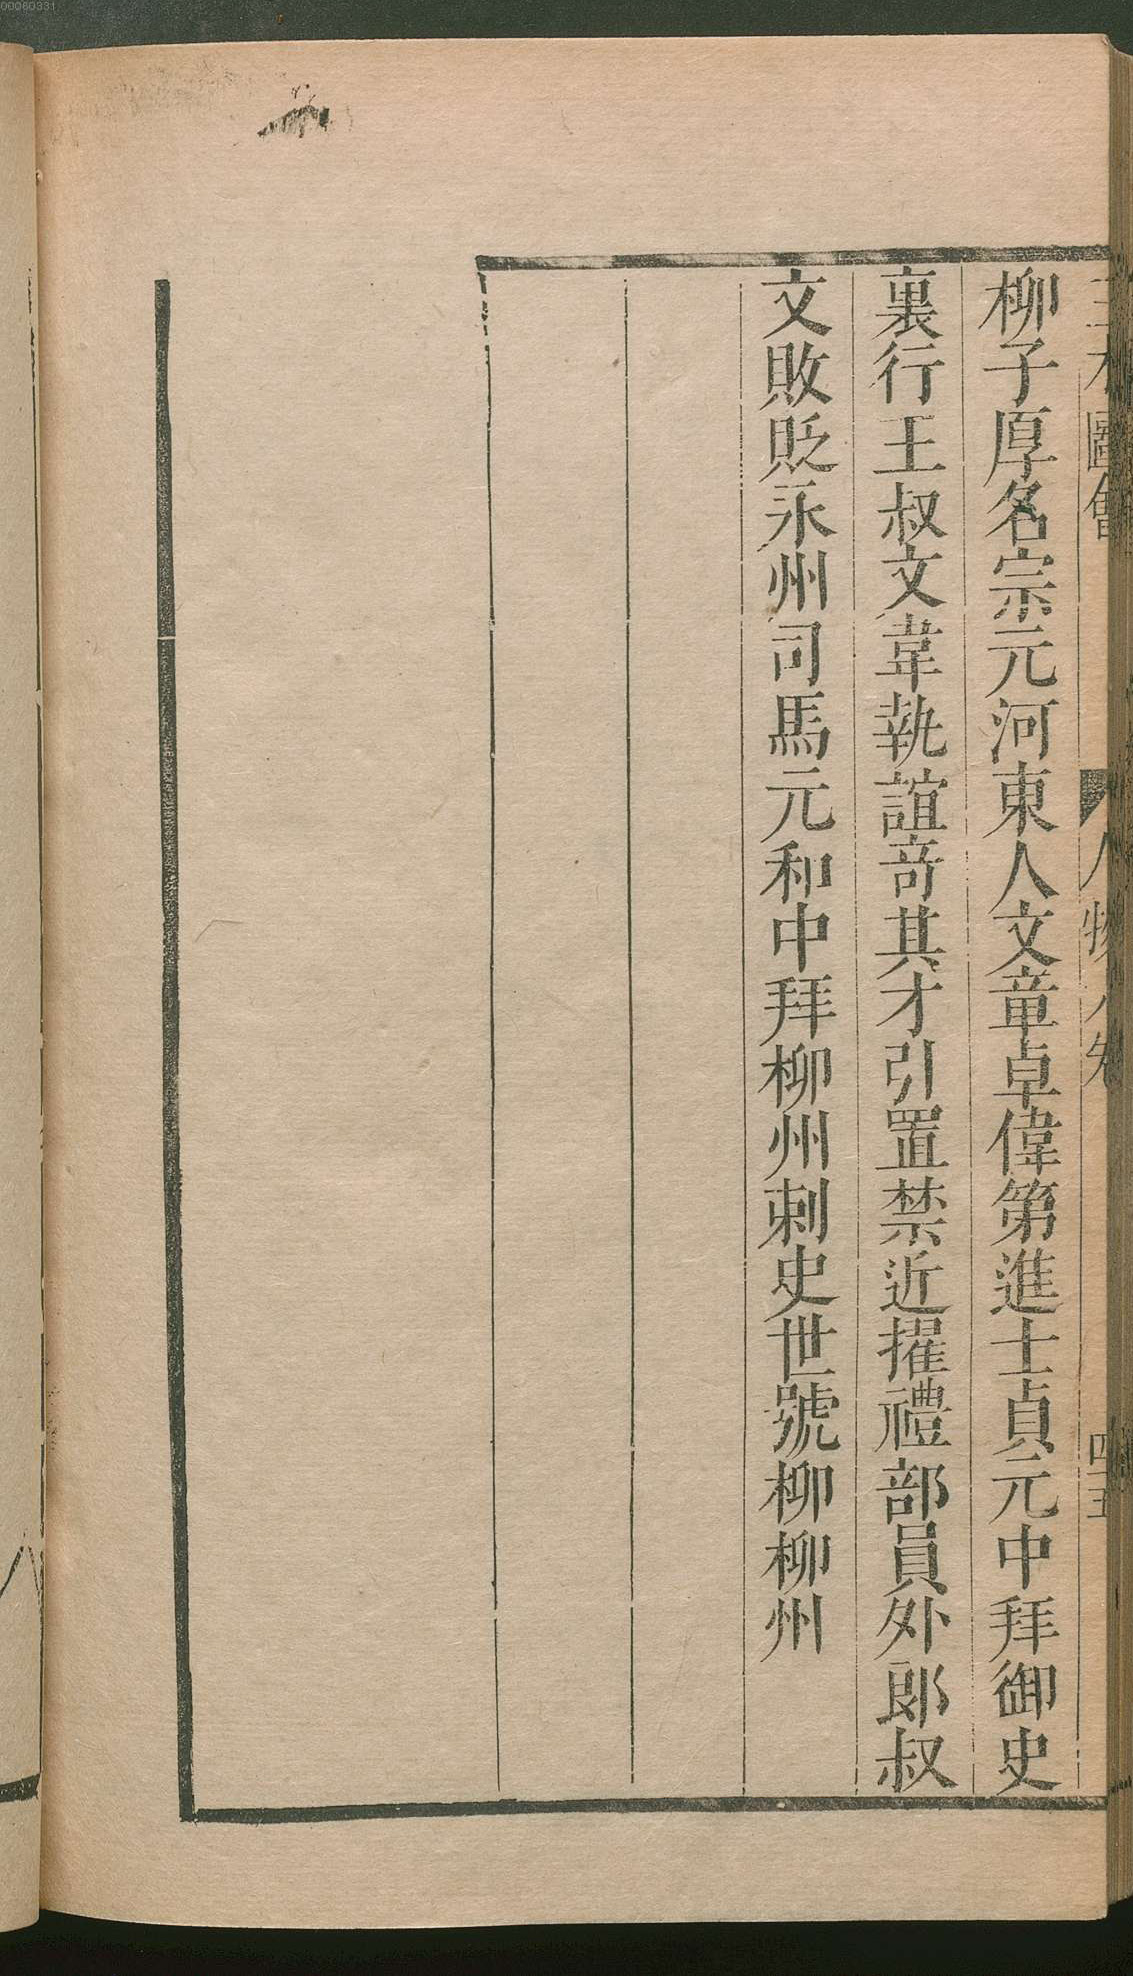 00060331
三才圖會 人物八卷 四五
柳子厚名宗元河東人文章卓偉第進士貞元中拜御史
裏行王叔文韋執誼竒其才引置禁近擢禮部員外郎叔
文敗貶永州司馬元和中拜柳州刺史世號柳柳州